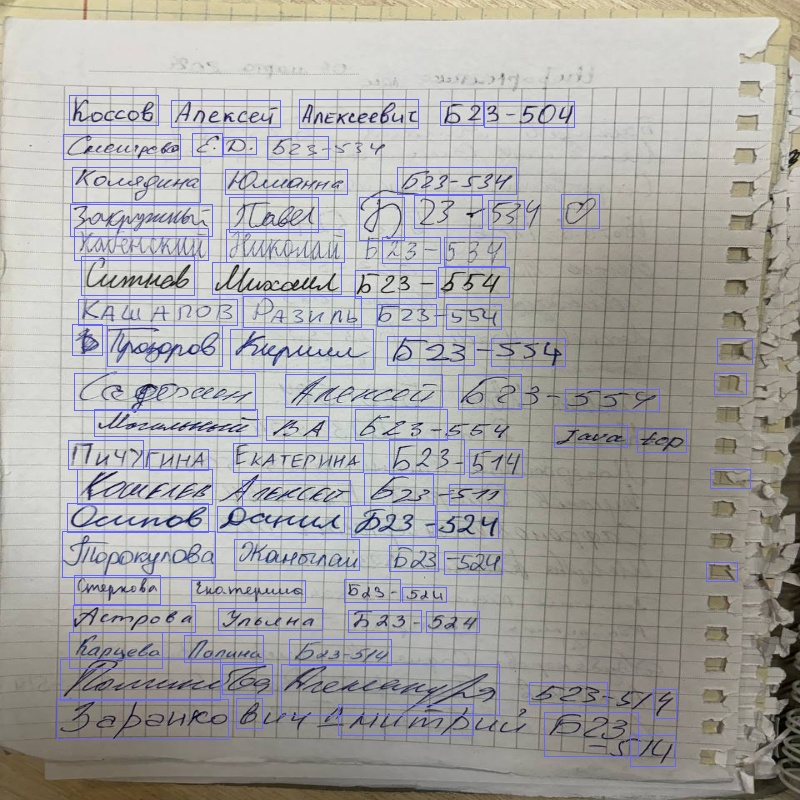 Коссов Алексей Алексеевич Б23-504
Е.Д. Б23-534
Колядина Юлианна Б23-534
Закружный Павел Б23-534 ♡
Каменский Николай Б23-534
Ситнев Михаил Б23-554
КАШАПОВ РАЗИЛЬ Б23-554
Прозоров Кирилл Б23-554
Алексей Б23-554
Могильный ВА Б23-554 Java top
ПИЧУГИНА ЕКАТЕРИНА Б23-514
Кошелев Алексей Б23-511
Осипов Данил Б23-524
Торокулова Жанылай Б23-524
Стеркова Екатерина Б23-524
Астрова Ульяна Б23-524
Карцева Полина Б23-514
Александра Б23-514
Заранкович Дмитрий Б23-514